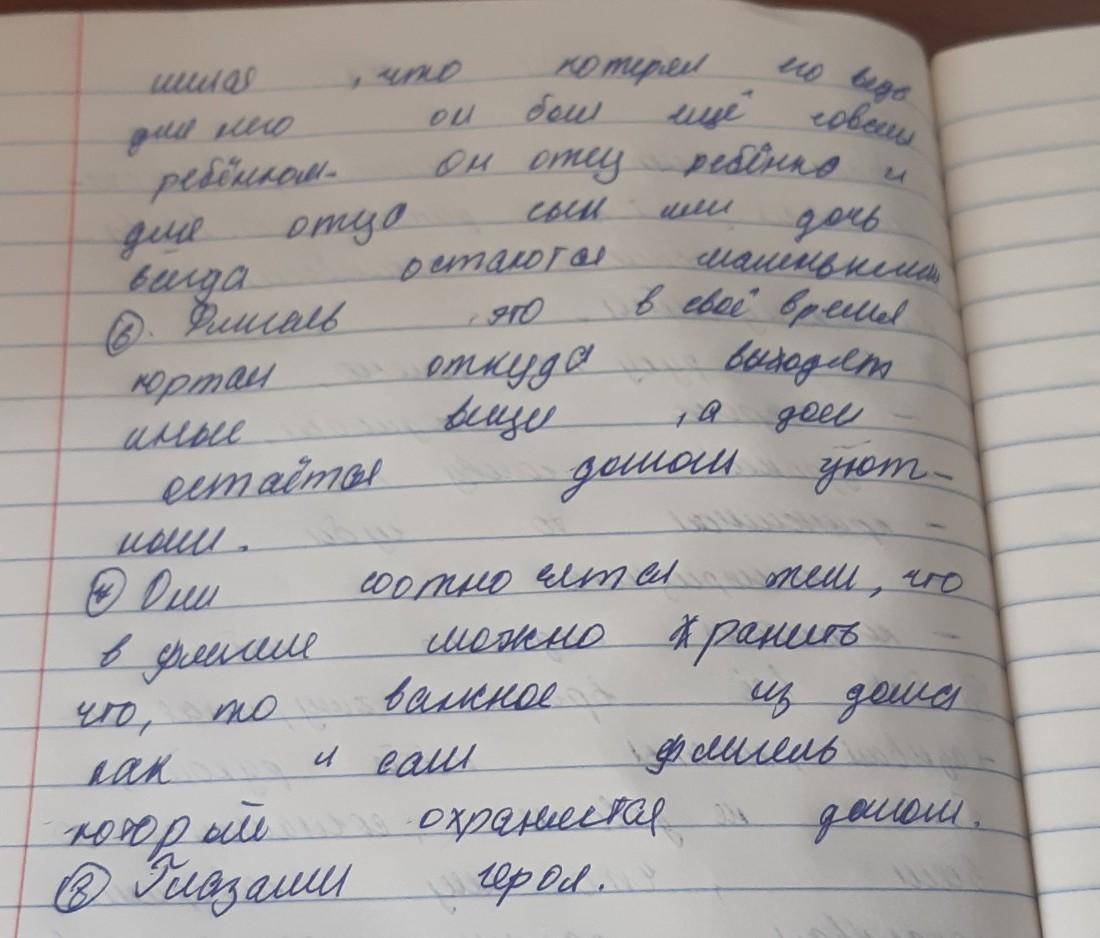 , что потерял его ведь
для него он был ещё совсем
ребёнком. Он отец ребёнка и
для отца сын или дочь
всегда остаются маленькими
⑥. Флигель это в своё время
портал откуда выходят
иные вещи , а дом -
остаётся домом уют-
ным.
⑦ Они соотносятся тем, что
в флигеле можно хранить
что, то важное из дома
как и сам флигель
который охраняется домом.
⑧ Глазами героя.